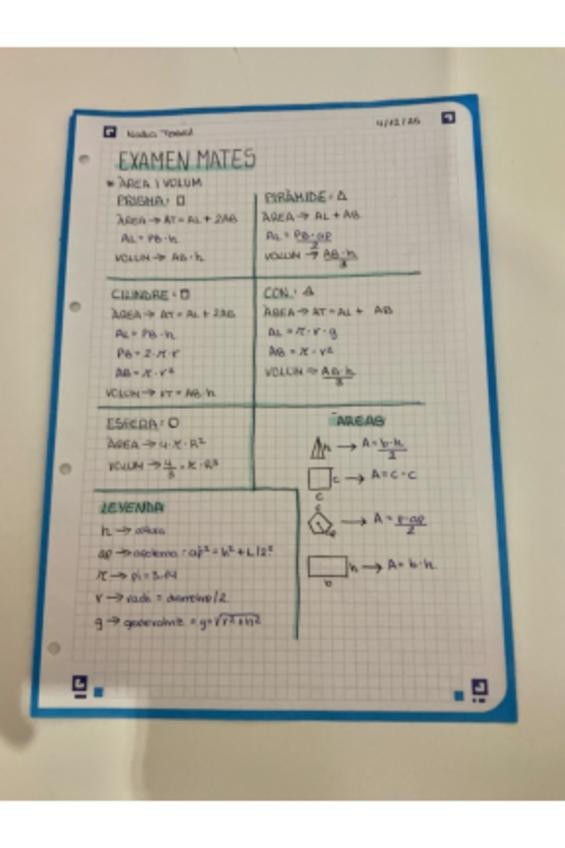 4/12/25
EXAMEN MATES
* ÀREA I VOLUM
PRISMA: □
ÀREA → AT = AL + 2AB
AL = PB · h
VOLUM → AB · h
PIRÀMIDE: △
ÀREA → AL + AB
AL = PB · ap / 2
VOLUM → AB · h / 3
CILINDRE:
ÀREA → AT = AL + 2AB
AL = PB · h
PB = 2 · π · r
AB = π · r²
VOLUM → VT = AB · h
CON: △
ÀREA → AT = AL + AB
AL = π · r · g
AB = π · r²
VOLUM → AB · h / 3
ESFERA: ○
ÀREA → 4 · π · R²
VOLUM → 4/3 · π · R³
ÀREAS
h → A = b · h / 2
c → A = c · c
c
→ A = p · ap / 2
h → A = b · h
b
LLEVENDA
h → altura
ap → apotema: ap² = h² + L/2²
π → pi = 3.14
r → radi = diametro/2
g → generatriz = g = √r² + h²